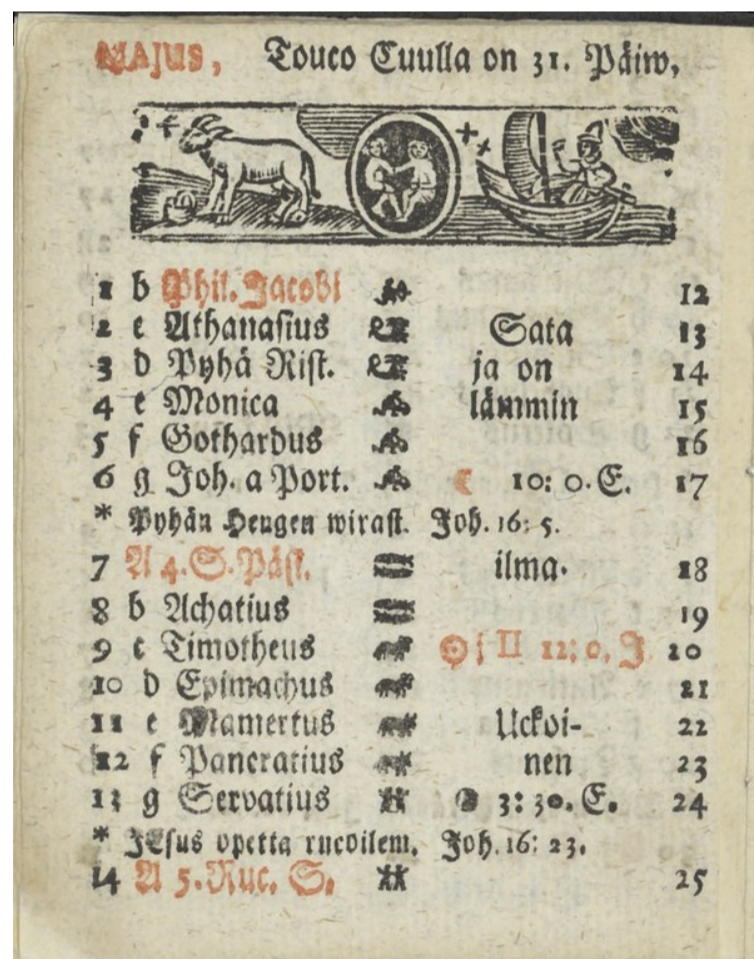 MAJUS, Touco Cuulla on 31. Päiw,
1 b Phil. Jacobi 12
2 c Athanasius Sata 13
3 d Pyhä Rist. ja on 14
4 e Monica lämmin 15
5 f Gothardus 16
6 g Joh. a Port. ☾ 10: 0. E. 17
* Pyhän Hengen wirast. Joh. 16: 5.
7 A 4. S. Pääs. ilma. 18
8 b Achatius 19
9 c Timotheus ☉ i ♊ 12: 0. J 20
10 d Epimachus 21
11 e Mamertus Uckoi- 22
12 f Pancratius nen 23
13 g Servatius 3: 30. E. 24
* JEsus opetta rucoilem. Joh. 16: 23.
14 A 5. Ruc. S. 25